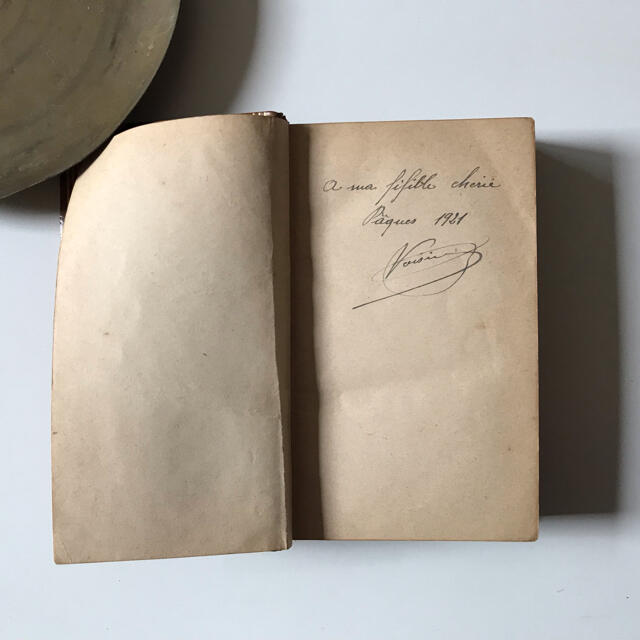 A ma fifible chérie
Pâques 1921
Voisin